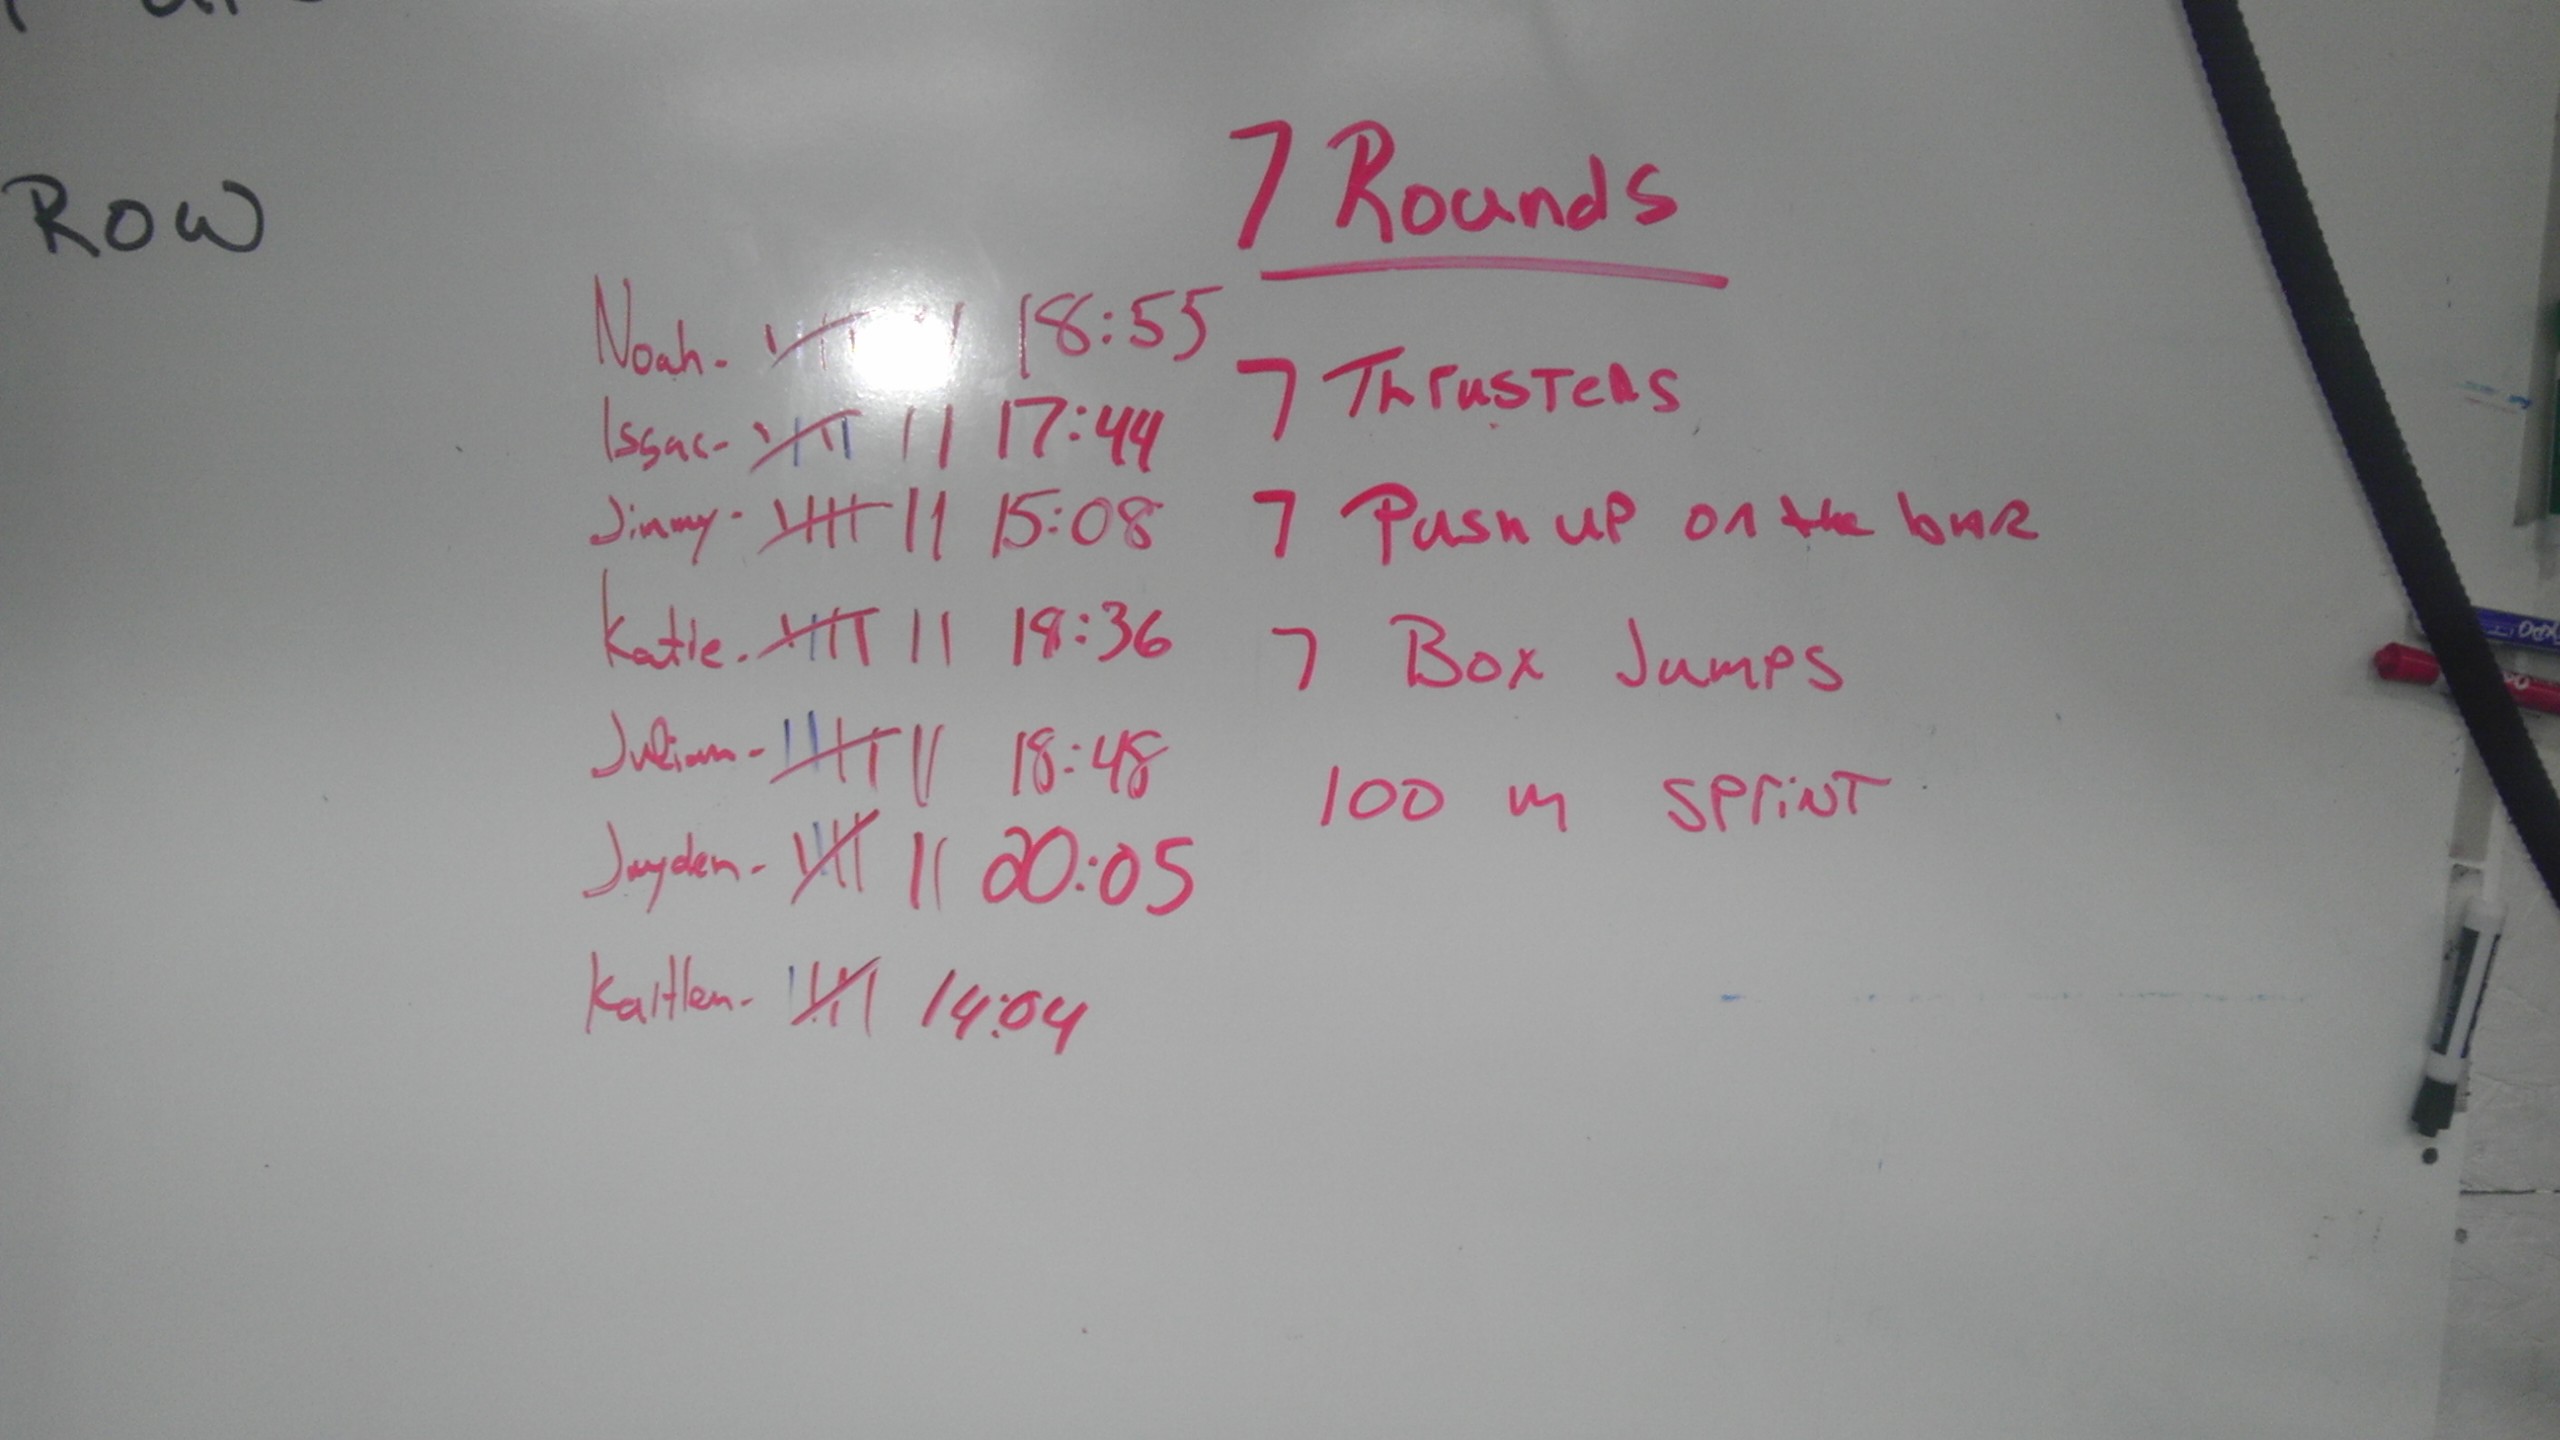 ROW
7 Rounds
Noah- 18:55
Issac- 17:44
Jimmy- 15:08
Katie- 18:36
Julian- 18:48
Jayden- 20:05
Kaitlen- 14:04
7 Thrusters
7 Push up on the bar
7 Box Jumps
100 m sprint